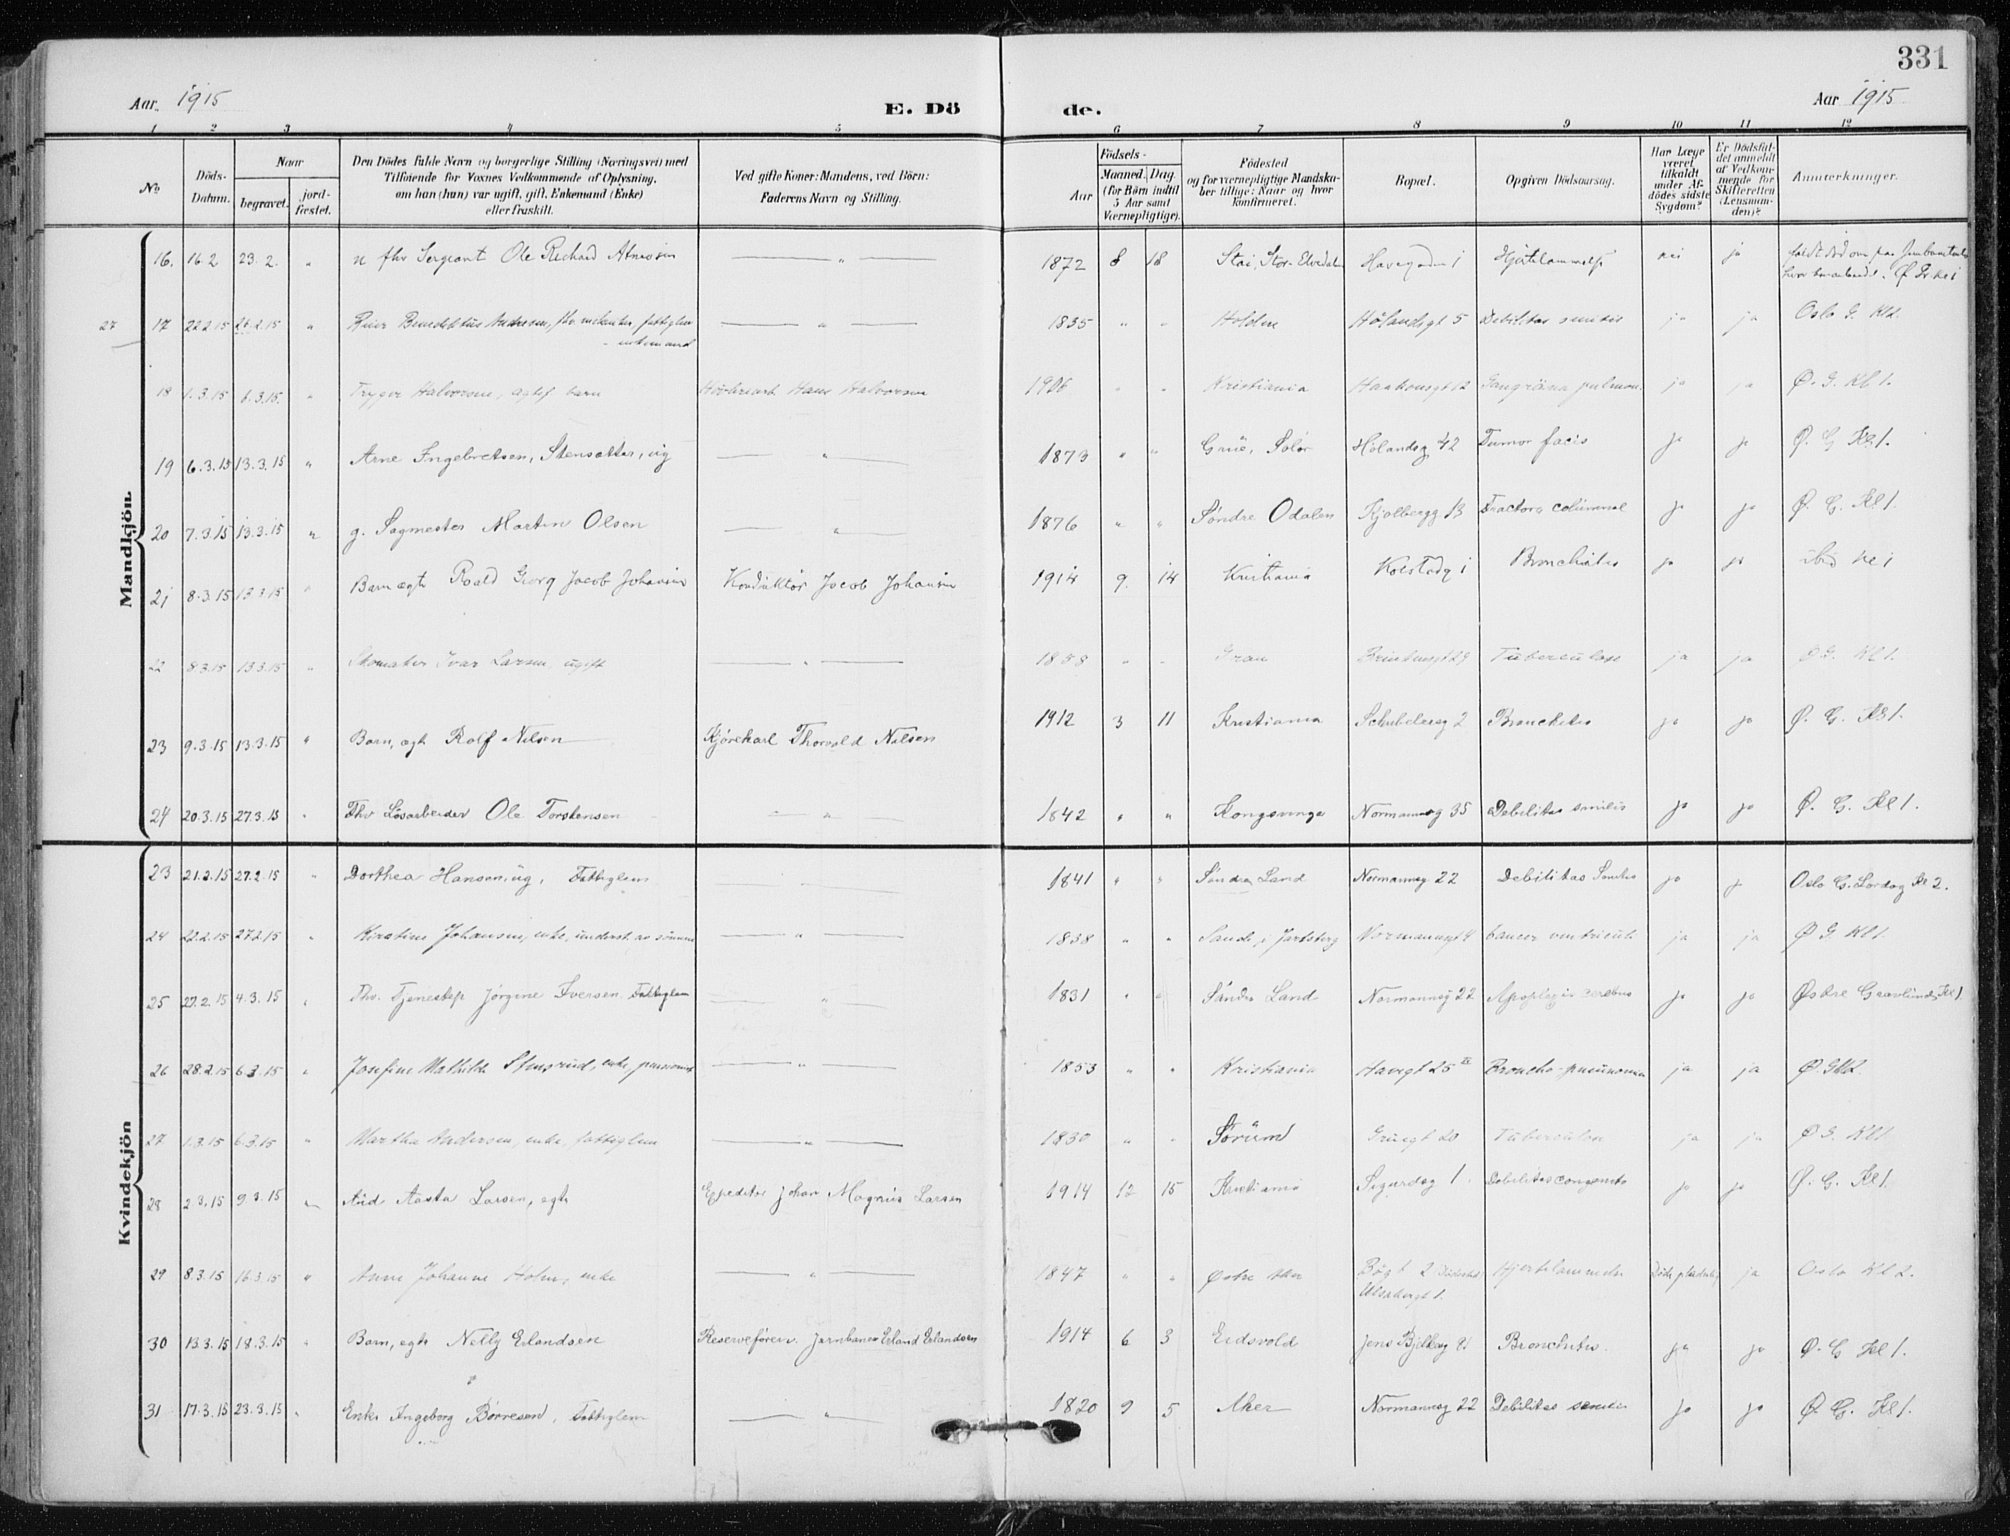 331
Aar 1915 E. Dö de. Aar 1915
1 2 3 4 5 6 7 8 9 10 11 12
No. Döds-Datum. Naar begravet. jord-fæstet. Den Dödes fulde Navn og borgerlige Stilling (Næringsvei) med Tilföiende for Voxnes Vedkommende af Oplysning, om han (hun) var ugift, gift, Enkemand (Enke) eller fraskilt. Ved gifte Koner: Mandens, ved Börn: Faderens Navn og Stilling. Födsels- Aar Maaned. Dag (for Børn indtil 5 Aar samt Værnepligtige). Födested og for værnepligtige Mandskaber tillige: Naar og hvor konfirmeret. Bopæl. Opgiven Dödsaarsag. Har Læge været tilkaldt under Afdödes sidste Sygdom? Er Dödsfaldet anmeldt af Vedkommende for Skifteretten (Lensmanden)? Anmerkninger.
Mandkjön.
16. 16.2 23.2. " Sergeant Ole Richard " 1872 8 18 Stai, Stor-Elvedalen 1 nei ja
27 17 22.2.15 26.2.15 " Benediktus Andersen, " 1835 " " Holden Hølandsgt 5 Debilitas senilis ja ja Oslo G. Kl 2.
18 1.3.15 6.3.15. " Halvorsen, barn Hans Halvorsen 1906 " " Kristiania Haakonsgt 12 Gangräna pulmon. ja ja Ø. G. Kl 1.
19 6.3.15 13.3.15 " Arne Engebretsen, ug " 1873 " " Grue, Solør Hølandsg 42 Tumor facis ja ja Ø. G Kl 1.
20 7.3.15 13.3.15 " g. Sagmester Martin Olsen " 1876 " " Søndre Odalen Kjølbergg 13 columnal ja ja Ø. G. Kl 1.
21 8.3.15 13.3.15 " Barn ægt Roald Georg Jacob Johansen Konduktør Jacob Johansen 1914 9. 14 Kristiania 1 Bronchitis ja ja ibid Kl 1
22 8.3.15 13.3.15 " Skomaker Ivar Larsen ugift " 1858 " " Gran Tuberculose ja ja Ø G. Kl 1.
23 9.3.15 13.3.15 " Barn, ægt Rolf Nilsen Kjørekarl Thorvald Nilsen 1912 3 11 Kristiania Schübelersg 2 Bronchitis ja ja Ø. G. Kl 1.
24 20.3.15 27.3.15 " Fhv Løsarbeider Ole Torstensen " 1842 " " Kongsvinger Normannsg 35 Debilitas senilis ja ja Ø. G. Kl 1.
Kvindekjön
23 21.2.15 27.2.15 " Dorthea Hansen, ug, Fattiglem 1841 " " Søndre Land Normannsg 22 Debilitas Senilis ja ja Oslo G. Lørdag Kl 2.
24 22.2.15 27.2.15 " Kirstine Johansen, enke, underst. av sønnen " 1838 " " Sande, i Jarlsberg Normannsgt 4 Cancer ventriculi ja ja Ø G. Kl 1.
25 27.2.15 4.3.15 " Fhv. Tjenestep Jørgine Iversen Fattiglem " 1831 " " Søndre Land Normannsg 22 Apoplexia cerebri ja ja Østre Gravlund, Kl 1
26 28.2.15 6.3.15 " Josefine Mathilde Stensrud, enke, " 1853 " " Kristiania Havegt 25 Broncho-pneumonia ja ja
27 1.3.15 6.3.15 " Martha Andersen, enke, fattiglem " 1830 " " Sørum Tuberculose ja ja Ø G. Kl 1.
28 2.3.15 9.3.15 " Aud Aasta Larsen, ægt Expeditør Johan Magnus Larsen 1914 12 15 Kristiania Sigurdsg 1 Debilitas congenita ja ja Ø. G. Kl 1.
29 8.3.15 16.3.15 " Anne Johanne Holm, enke " 1847 " " Østre Aker Bøgt 2 Hjertelammelse ja Oslo Kl 2.
30 13.3.15 18.3.15 " Barn, ægt Nelly Erlandsen Reservefører v. Jernbanen Erland Erlandsen 1914 6 3 Eidsvold Bronchitis. ja ja Ø. G Kl 1.
31 17.3.15 23.3.15 " Enke Ingeborg Børresen, Fattiglem " 1820 9 5 Aker Normannsg 22 Debilitas senilis ja ja Ø. G. Kl 1.